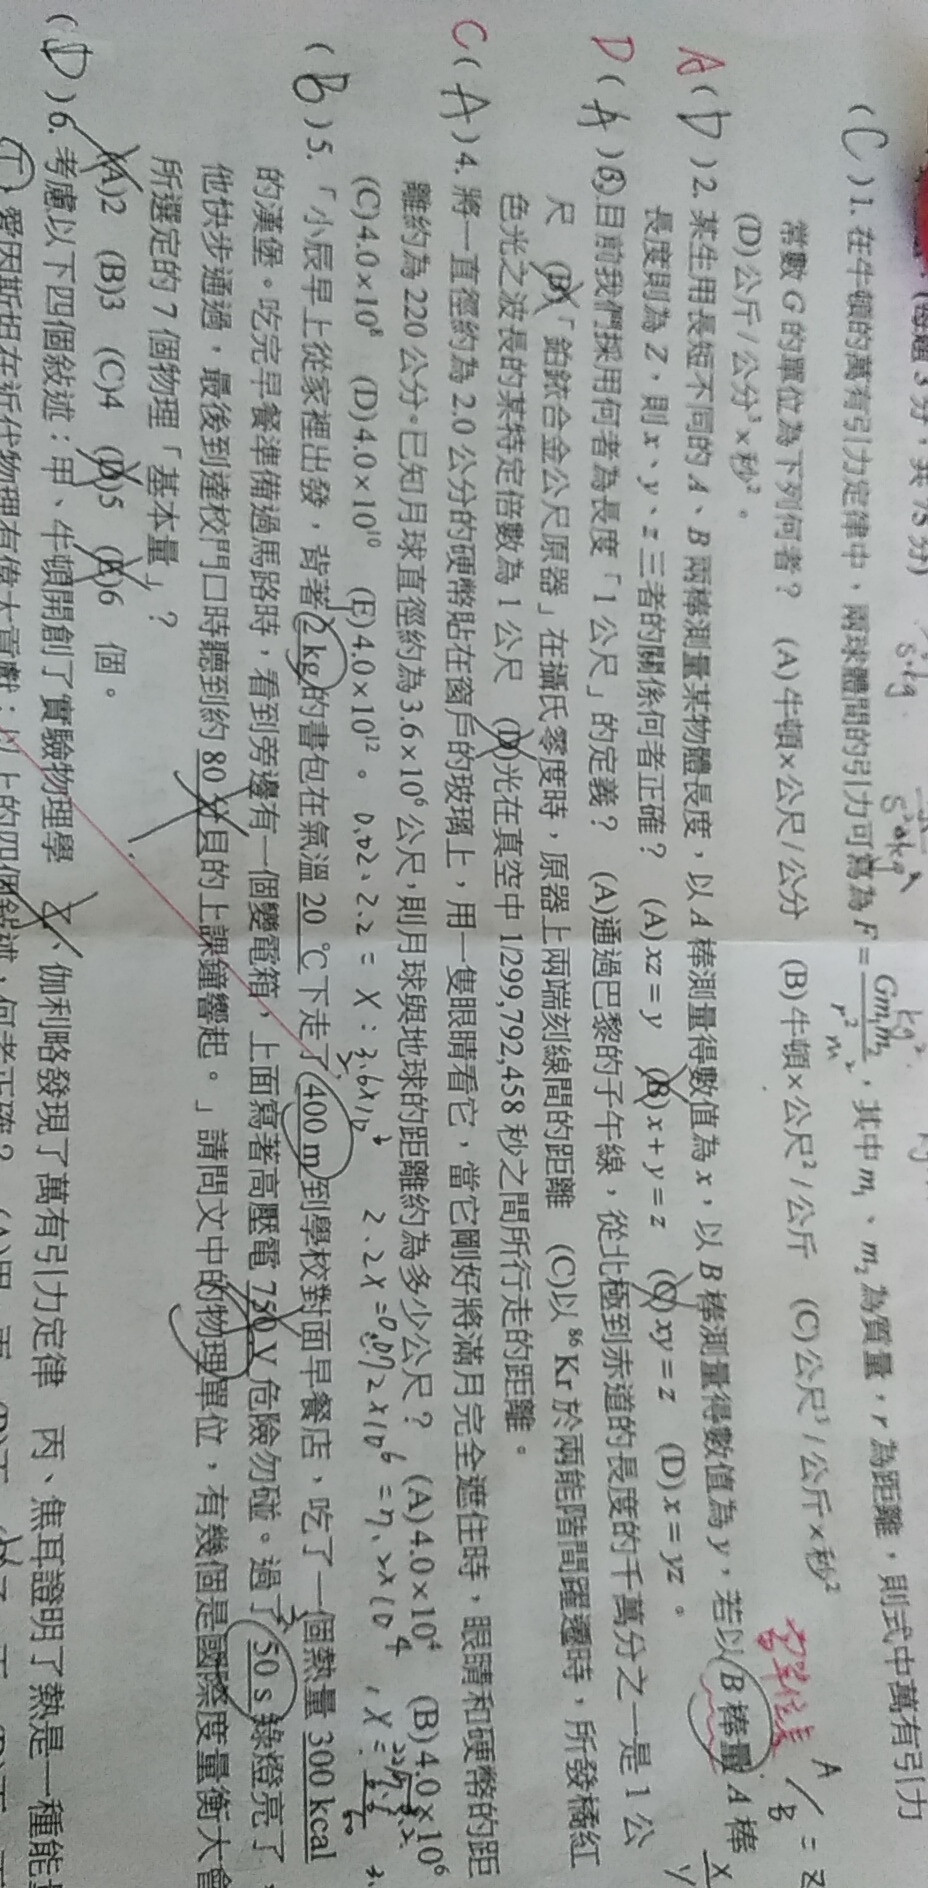 (每題 3 分，共 75 分)
(C)1. 在牛頓的萬有引力定律中、兩球體間的引力可寫為 F = Gm₁m₂/r²，其中 m₁、m₂ 為質量，r 為距離，則式中萬有引力
常數 G 的單位為下列何者？ (A)牛頓×公尺/公分 (B)牛頓×公尺²/公斤 (C)公尺³/公斤×秒²
(D)公斤/公分³×秒²。
A(D)2. 某生用長短不同的 A、B 兩棒測量某物體長度，以 A 棒測量得數值為 x，以 B 棒測量得數值為 y，若以 B 棒量 A 棒
長度則為 Z，則 x、y、z 三者的關係何者正確？ (A) xz = y (B) x + y = z (C) xy = z (D) x = yz。
D(A)3.目前我們採用何者為長度「1 公尺」的定義？ (A)通過巴黎的子午線，從北極到赤道的長度的千萬分之一是 1 公
尺 (B)「鉑銥合金公尺原器」在攝氏零度時，原器上兩端刻線間的距離 (C)以 ⁸⁶Kr 於兩能階間躍遷時，所發橘紅
色光之波長的某特定倍數為 1 公尺 (D)光在真空中 1/299,792,458 秒之間所行走的距離。
C(A)4. 將一直徑約為 2.0 公分的硬幣貼在窗戶的玻璃上，用一隻眼睛看它，當它剛好將滿月完全遮住時，眼睛和硬幣的距
離約為 220 公分。已知月球直徑約為 3.6×10⁶ 公尺，則月球與地球的距離約為多少公尺？ (A)4.0×10⁴ (B)4.0×10⁶
(C)4.0×10⁸ (D)4.0×10¹⁰ (E)4.0×10¹²。
(B)5. 「小辰早上從家裡出發，背著 2 kg 的書包在氣溫 20 ℃下走了 400 m 到學校對面早餐店，吃了一個熱量 300 kcal
的漢堡。吃完早餐準備過馬路時，看到旁邊有一個變電箱，上面寫著高壓電 750 V 危險勿碰。過了 50 s 綠燈亮了，
他快步通過，最後到達校門口時聽到約 80 分貝的上課鐘響起。」請問文中的物理單位，有幾個是國際度量衡大會
所選定的 7 個物理「基本量」？
(A)2 (B)3 (C)4 (D)5 (E)6 個。
(D)6. 考慮以下四個敘述：甲、牛頓開創了實驗物理學 乙、伽利略發現了萬有引力定律 丙、焦耳證明了熱是一種能
丁、愛因斯坦在近代物理有偉大貢獻；以上的四個敘述，何者正確？